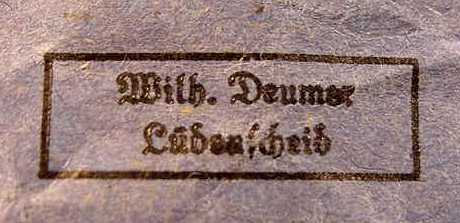 Wilh. Deumer
Lüdenscheid